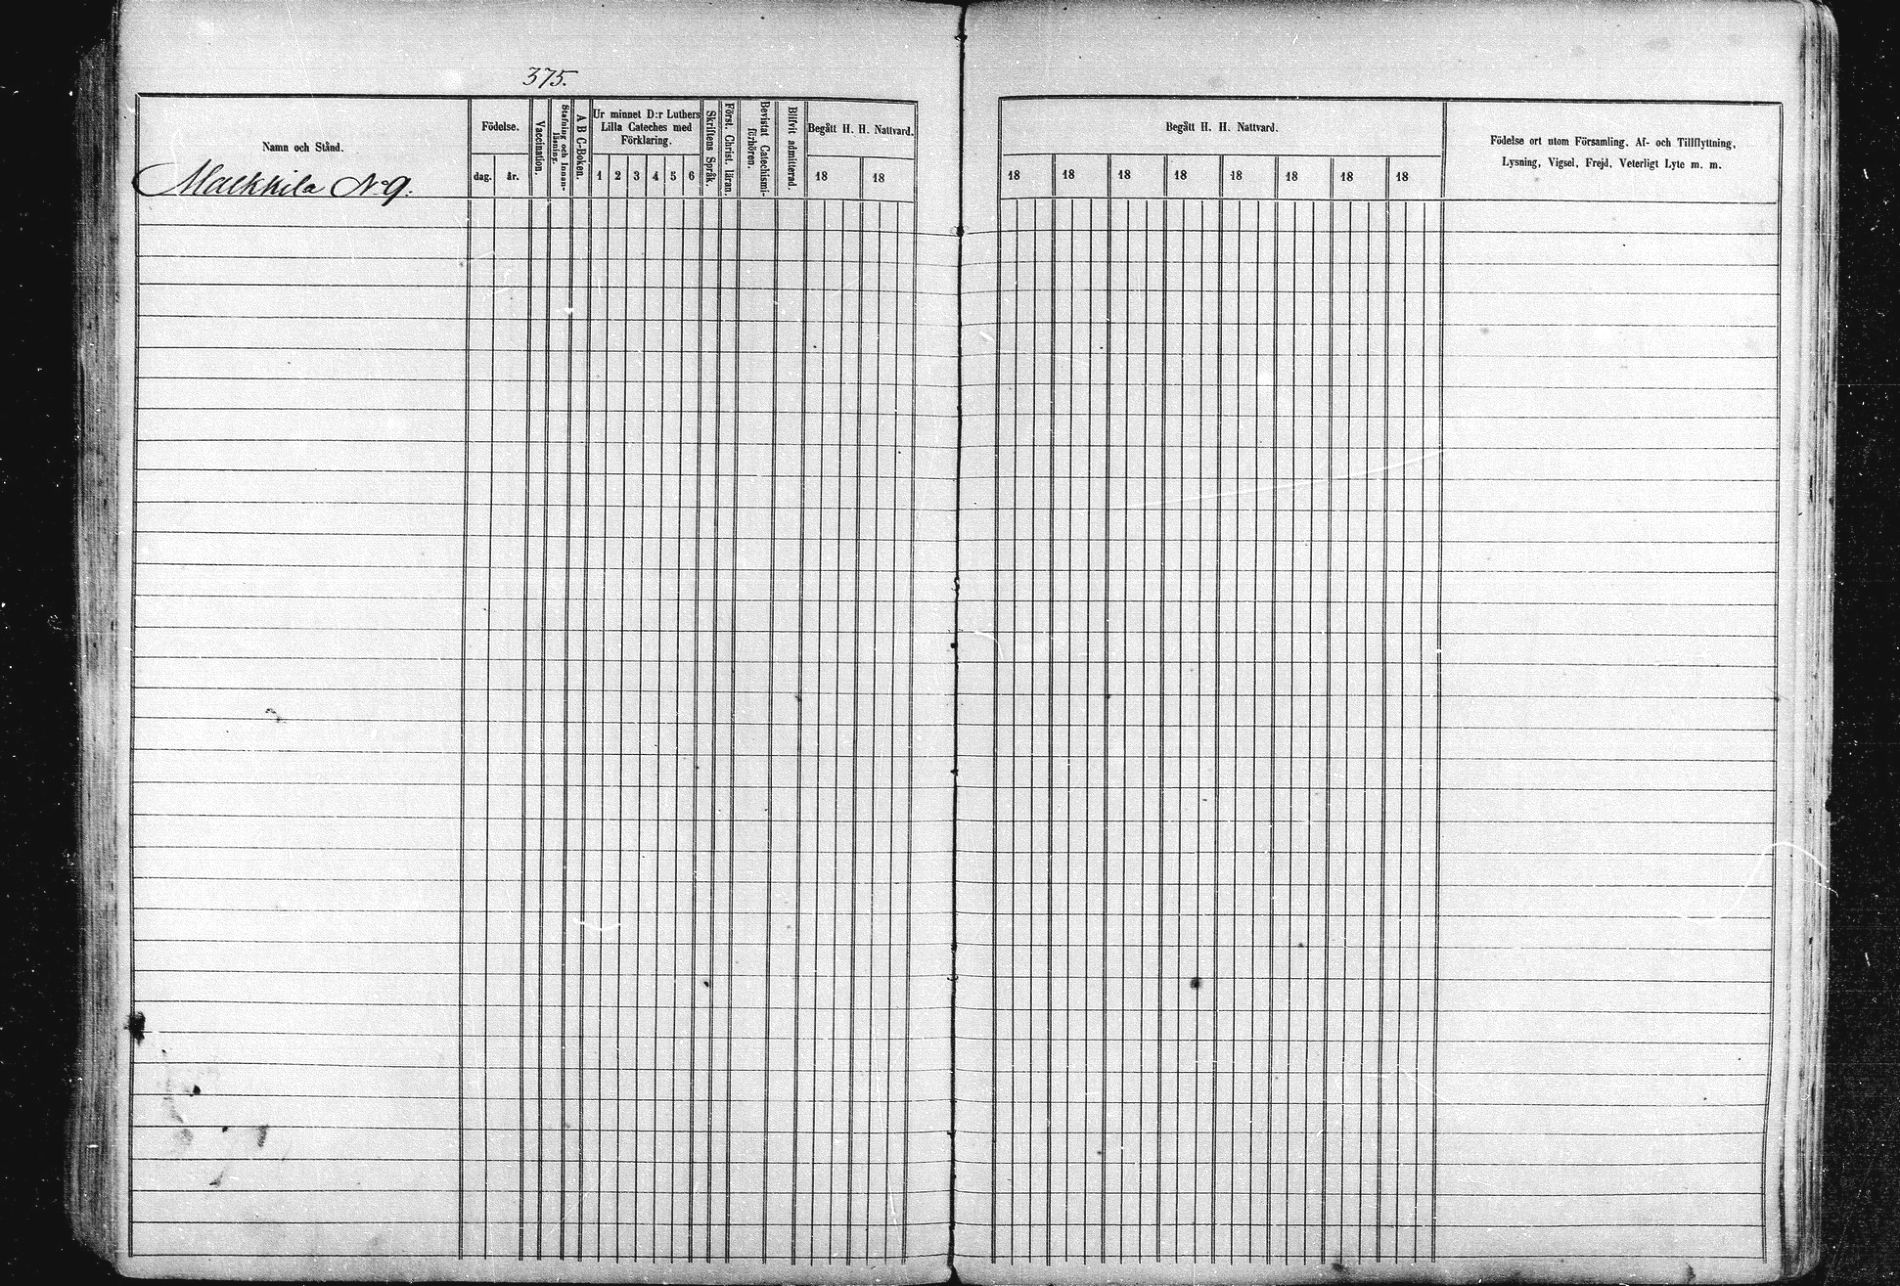 375.
Namn och Stånd.
Malkkila No 9.
Födelse.
dag.
år.
Vaccination.
Stafning och Innan-
läsning.
A B C-Boken.
Ur minnet D:r Luthers
Lilla Cateches med
Förklaring.
1 2 3 4 5 6
Skriftens Språk.
Först. Christ. läran.
Bevistat Catechismi-
förhören.
Blifvit admitterad.
Begått H. H. Nattvard.
18 18
Begått H. H. Nattvard.
18 18 18 18 18 18 18 18
Födelse ort utom Församling. Af- och Tillflyttning,
Lysning, Vigsel, Frejd, Veterligt Lyte m. m.